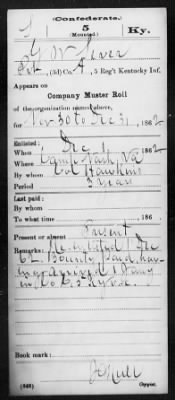 (Confederate.)
5
(Mounted.)
Ky.
G W
Pvt, (2d) Co. A, 5 Reg't Kentucky Inf.
Appears on
Company Muster Roll
of the organization named above,
for Nov 30 to Dec 31, 1862
Enlisted:
When Dec 1, 1862
Where Camp Nash, Va
By whom Col Hawkins
Period 3 years
Last paid:
By whom
To what time , 186 .
Present or absent Present
Remarks: Re-enlisted 1 Dec
62. Bounty paid, hav-
ing served 1
in Co. C, 5 Ky
Book mark:
(642)
Copyist.